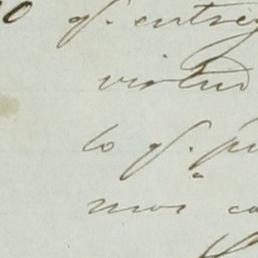 0 q.e entreg
virtud
lo q.e pu
mos ca